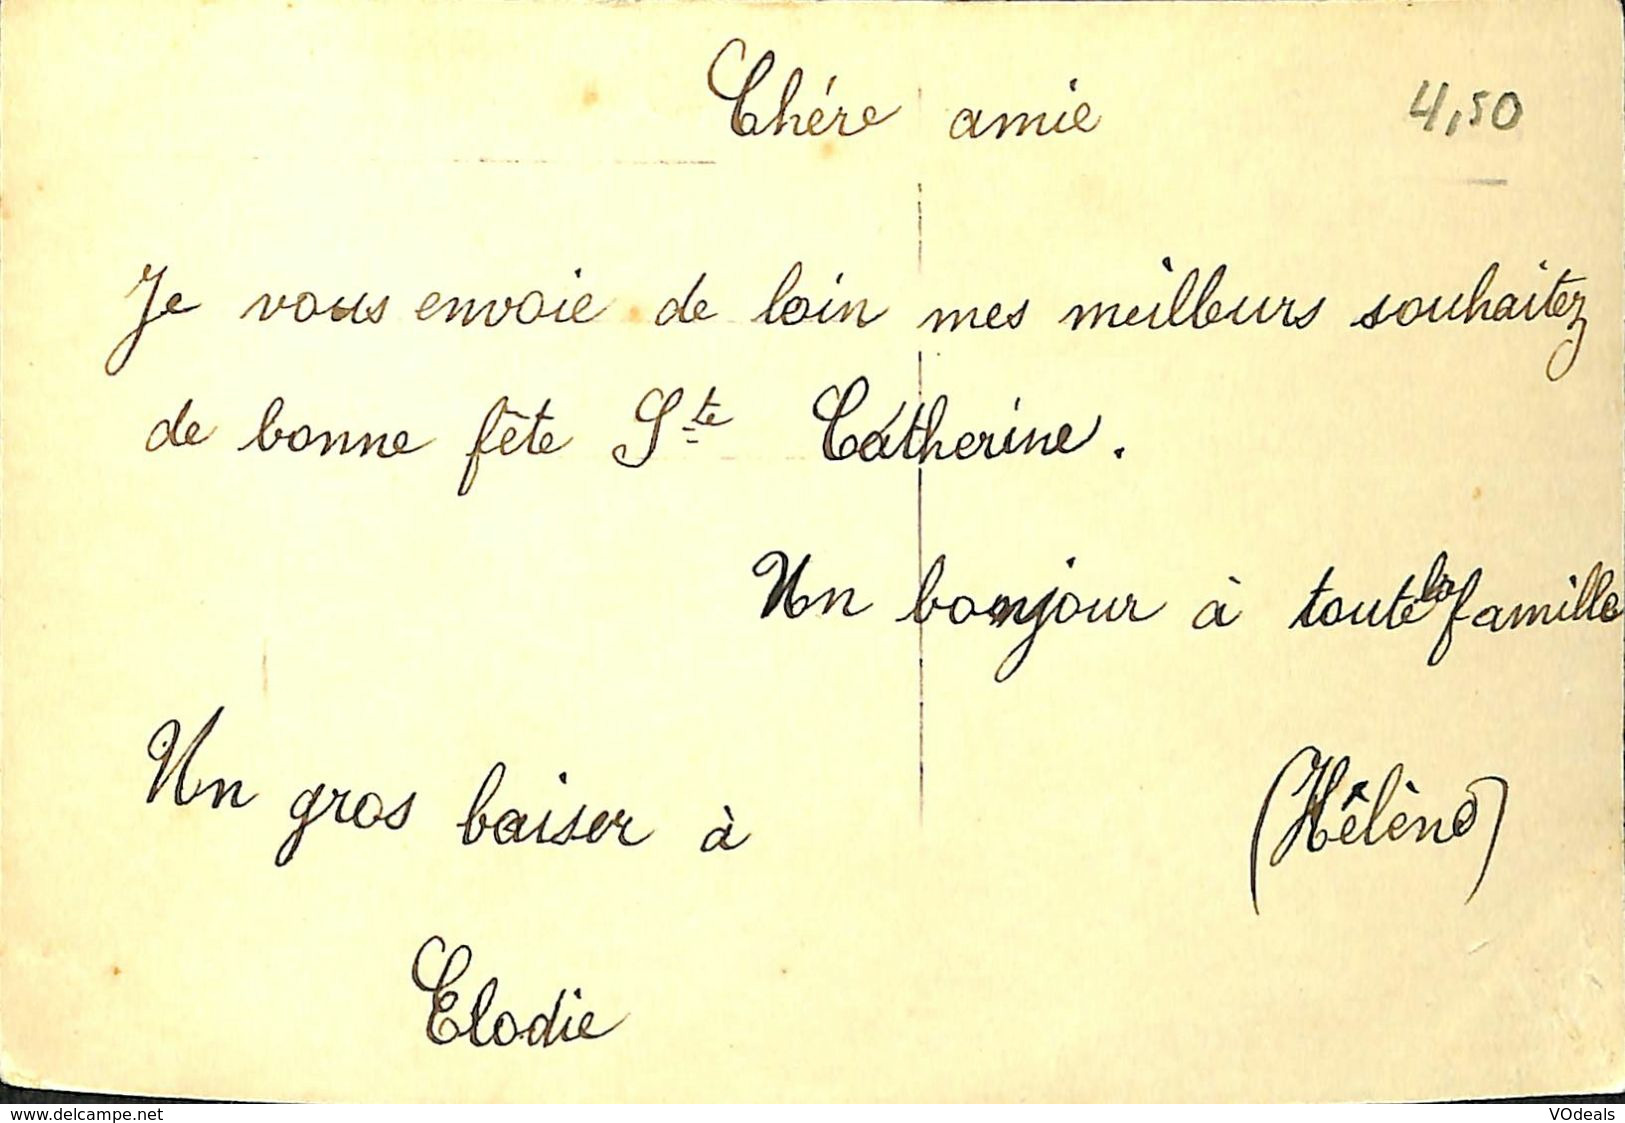 Chére amie
4,50
Je vous envoie de loin mes meilleurs souhaitez
de bonne fête Ste Catherine.
Un bonjour à toute la famille
Un gros baiser à
(Hêlène)
Elodie
www.delcampe.net
VOdeals